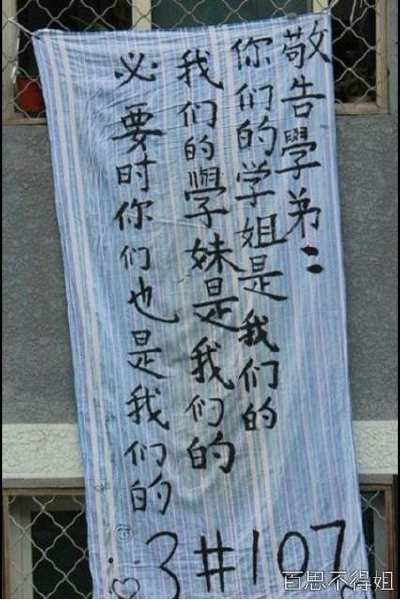 敬告學弟:
你们的学姐是我们的
我们的學妹是我们的
必要时你们也是我们的
3#107
百思不得姐